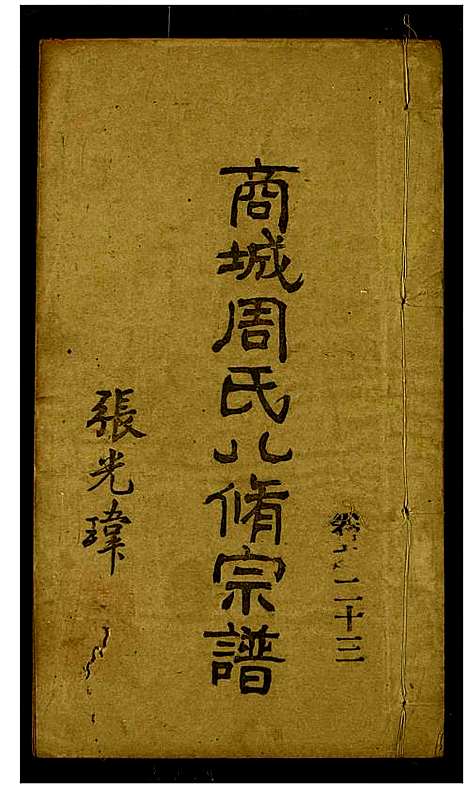 卷之二十三
商城周氏八脩宗譜
張光瑋